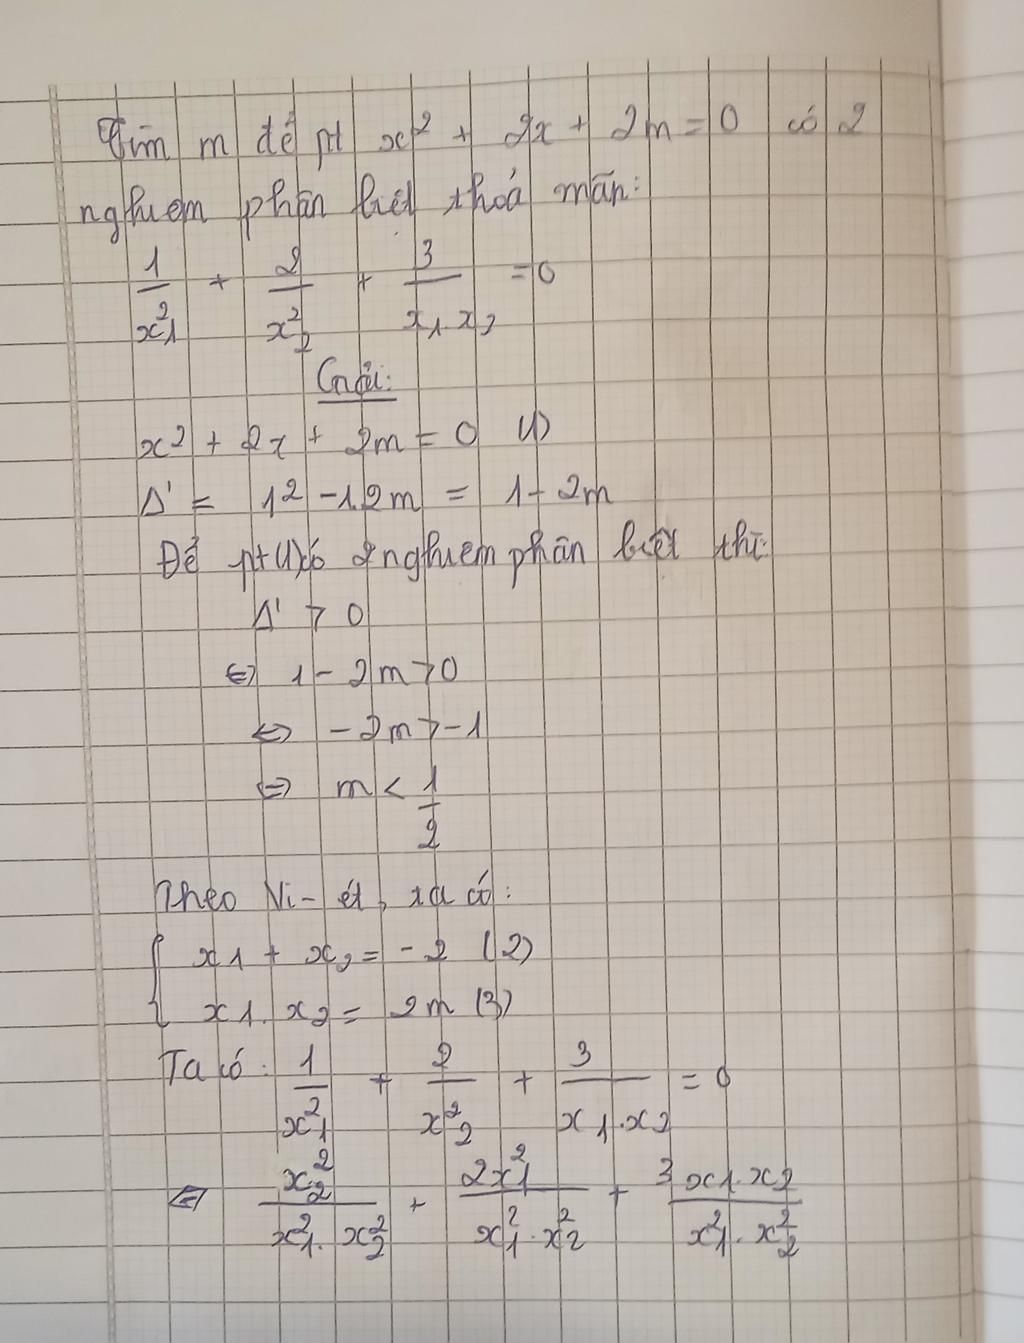 Tìm m để pt x² + 2x + 2m = 0 có 2
nghiệm phân biệt thoả mãn:
1/x₁² + 2/x₂² + 3/x₁.x₂ = 0
Giải:
x² + 2x + 2m = 0 (1)
Δ' = 1² - 1.2m = 1 - 2m
Để pt (1) có 2 nghiệm phân biệt thì:
Δ' > 0
⇔ 1 - 2m > 0
⇔ - 2m > - 1
⇔ m < 1/2
Theo Vi-ét, ta có:
{ x₁ + x₂ = - 2 (2)
x₁. x₂ = 2m (3)
Ta có: 1/x₁² + 2/x₂² + 3/x₁.x₂ = 0
⇔ x₂²/x₁².x₂² + 2x₁²/x₁².x₂² + 3x₁.x₂/x₁².x₂²